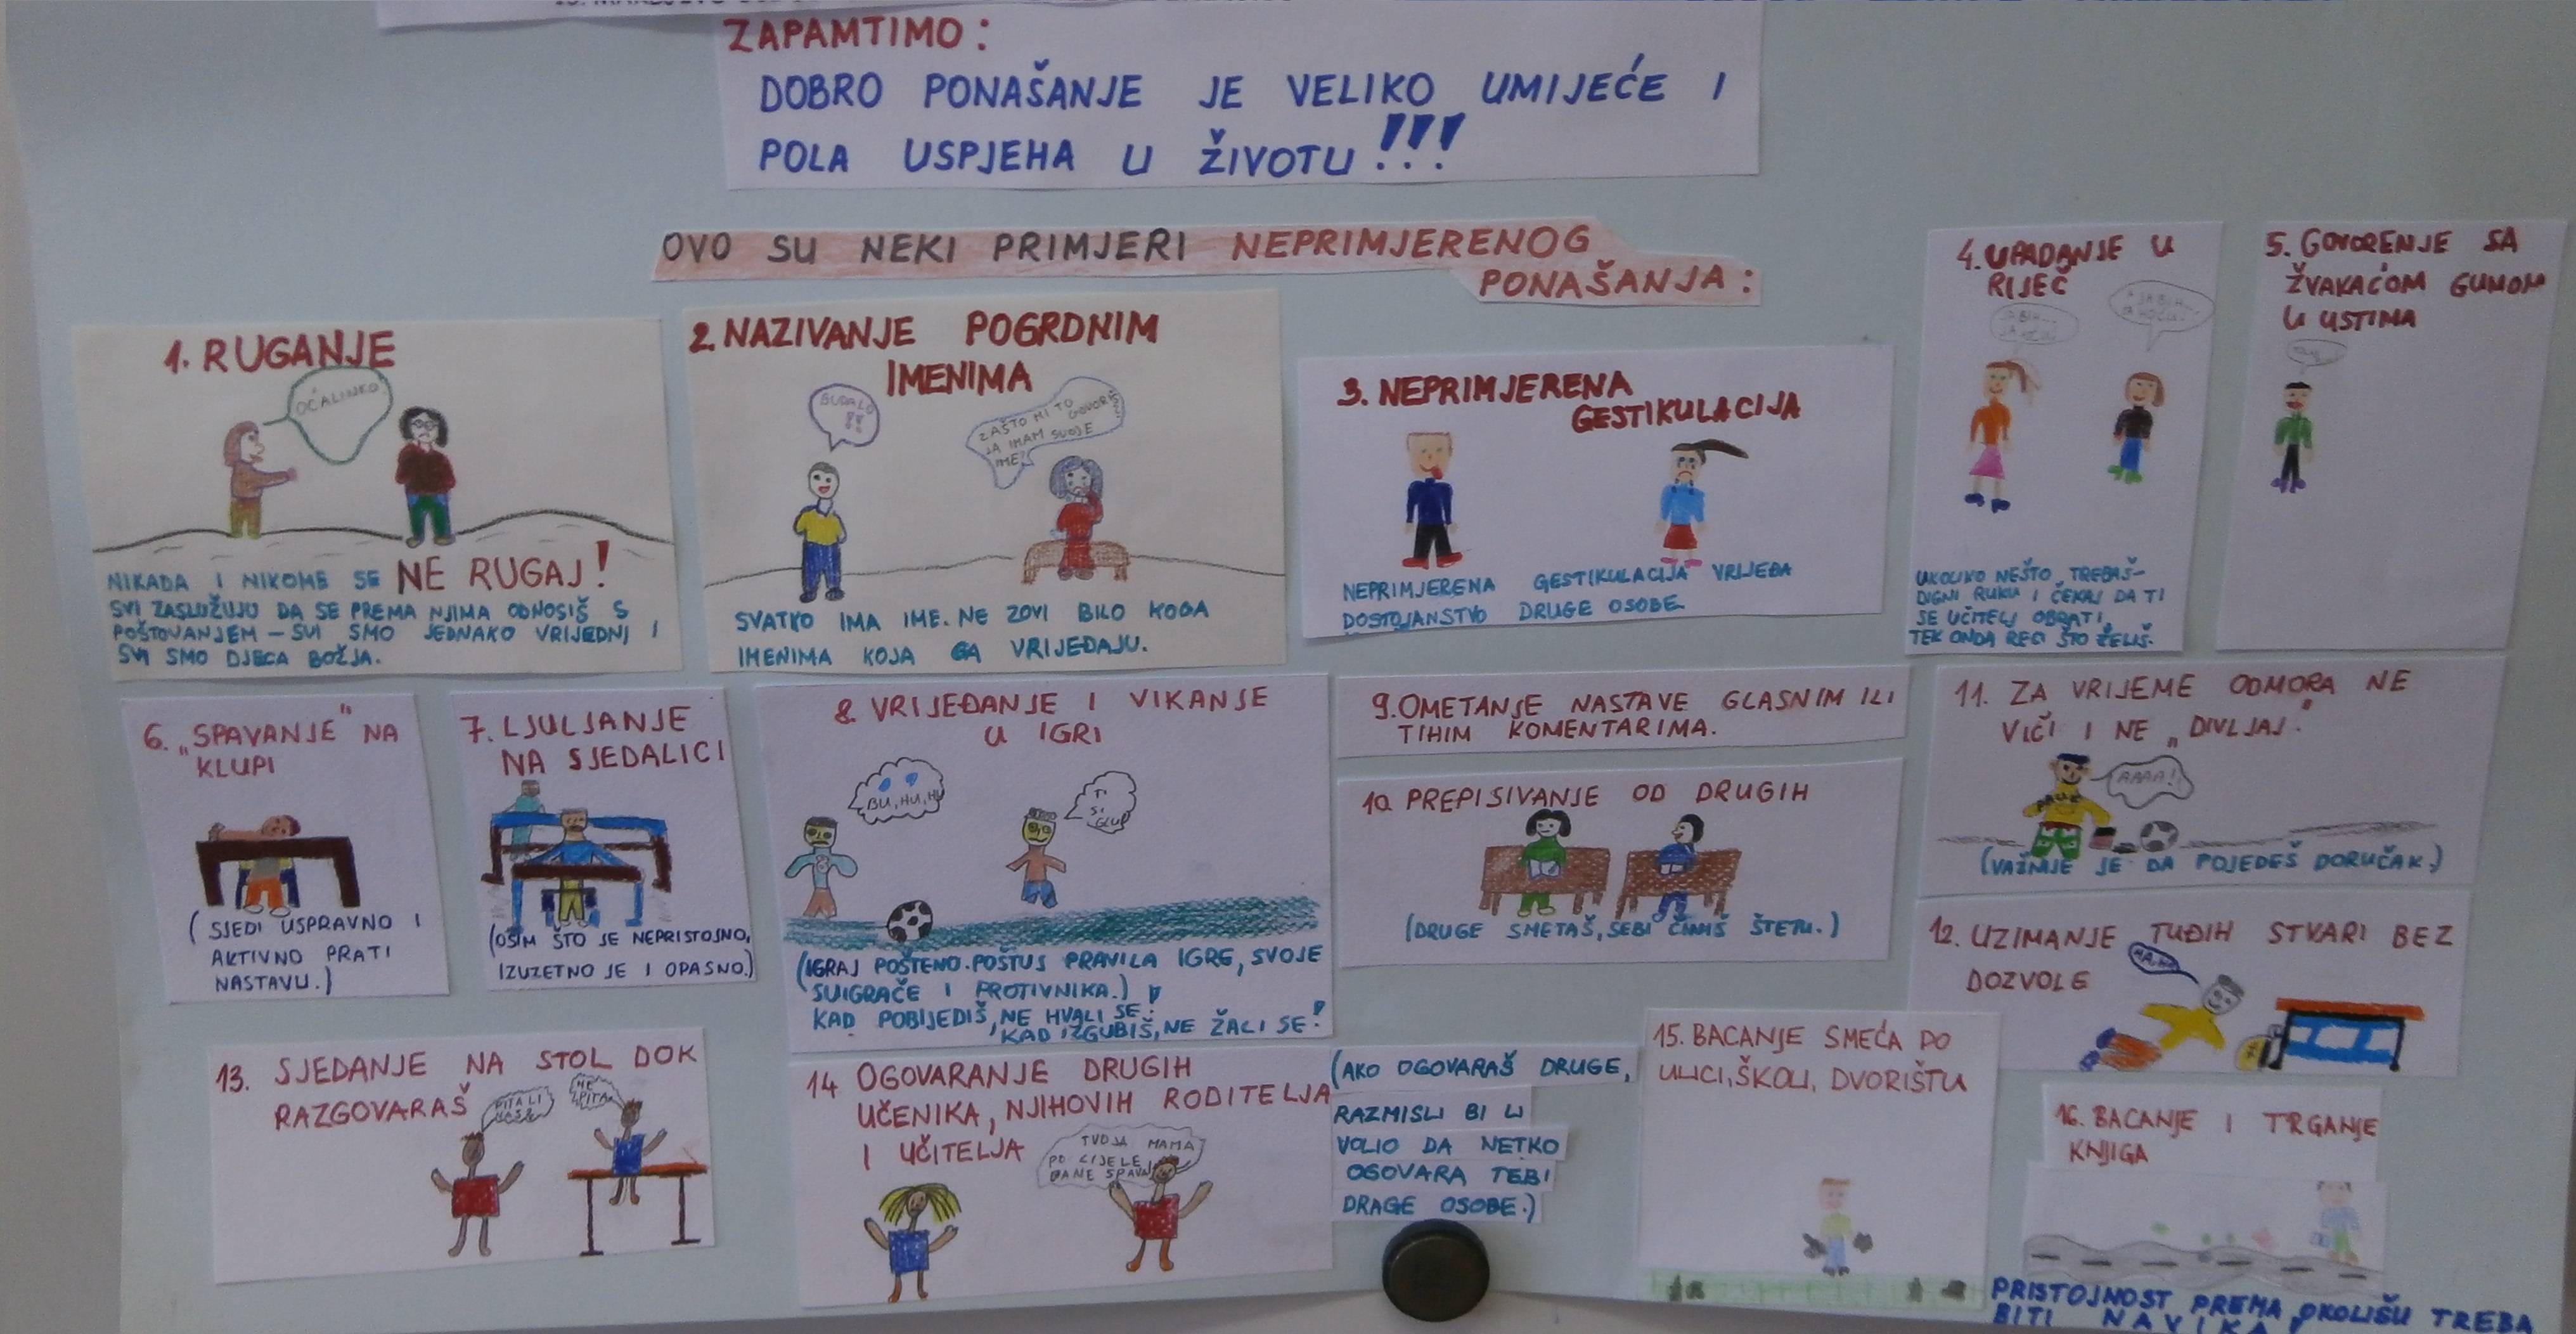 ZAPAMTIMO:
DOBRO PONAŠANJE JE VELIKO UMIJEĆE I
POLA USPJEHA U ŽIVOTU!!!
OVO SU NEKI PRIMJERI NEPRIMJERENOG
PONAŠANJA:
1. RUGANJE
OĆALINKO
NIKADA I NIKOME SE NE RUGAJ!
SVI ZASLUŽUJU DA SE PREMA NJIMA ODNOSIŠ S
POŠTOVANJEM – SVI SMO JEDNAKO VRIJEDNI I
SVI SMO DJECA BOŽJA.
2. NAZIVANJE POGRDNIM
IMENIMA
BUDALO
!!
ZAŠTO MI TO GOVORIŠ
JA IMAM SVOJE
IME!
SVATKO IMA IME. NE ZOVI BILO KOGA
IMENIMA KOJA GA VRIJEĐAJU.
3. NEPRIMJERENA
GESTIKULACIJA
NEPRIMJERENA GESTIKULACIJA VRIJEĐA
DOSTOJANSTVO DRUGE OSOBE
4. UPADANJE U
RIJEČ
JA BIH...
JA HOĆU...
A JA BIH...
JA HOĆU...
UKOLIKO NEŠTO TREBAŠ–
DIGNI RUKU I ČEKAJ DA TI
SE UČITELJ OBRATI,
TEK ONDA RECI ŠTO ŽELIŠ.
5. GOVORENJE SA
ŽVAKAĆOM GUMOM
U USTIMA
6. „SPAVANJE" NA
KLUPI
(SJEDI USPRAVNO I
AKTIVNO PRATI
NASTAVU.)
7. LJULJANJE
NA SJEDALICI
(OSIM ŠTO JE NEPRISTOJNO,
IZUZETNO JE I OPASNO.)
8. VRIJEĐANJE I VIKANJE
U IGRI
BU, HU, HU
TI
SI
GLUP
(IGRAJ POŠTENO. POŠTUJ PRAVILA IGRE, SVOJE
SUIGRAČE I PROTIVNIKA.)
KAD POBIJEDIŠ, NE HVALI SE!
KAD IZGUBIŠ, NE ŽALI SE!
9. OMETANJE NASTAVE GLASNIM ILI
TIHIM KOMENTARIMA.
10. PREPISIVANJE OD DRUGIH
(DRUGE SMETAŠ, SEBI ČINIŠ ŠTETU.)
11. ZA VRIJEME ODMORA NE
VIČI I NE „DIVLJAJ."
AAAA!
(VAŽNIJE JE DA POJEDEŠ DORUČAK.)
12. UZIMANJE TUĐIH STVARI BEZ
DOZVOLE
13. SJEDANJE NA STOL DOK
RAZGOVARAŠ
14 OGOVARANJE DRUGIH
UČENIKA, NJIHOVIH RODITELJA
I UČITELJA
TVOJA MAMA
PO CIJELE
DANE SPAVA
(AKO OGOVARAŠ DRUGE,
RAZMISLI BI LI
VOLIO DA NETKO
OGOVARA TEBI
DRAGE OSOBE.)
15. BACANJE SMEĆA PO
ULICI, ŠKOLI, DVORIŠTU
16. BACANJE I TRGANJE
KNJIGA
PRISTOJNOST PREMA OKOLIŠU TREBA
BITI NAVIKA!